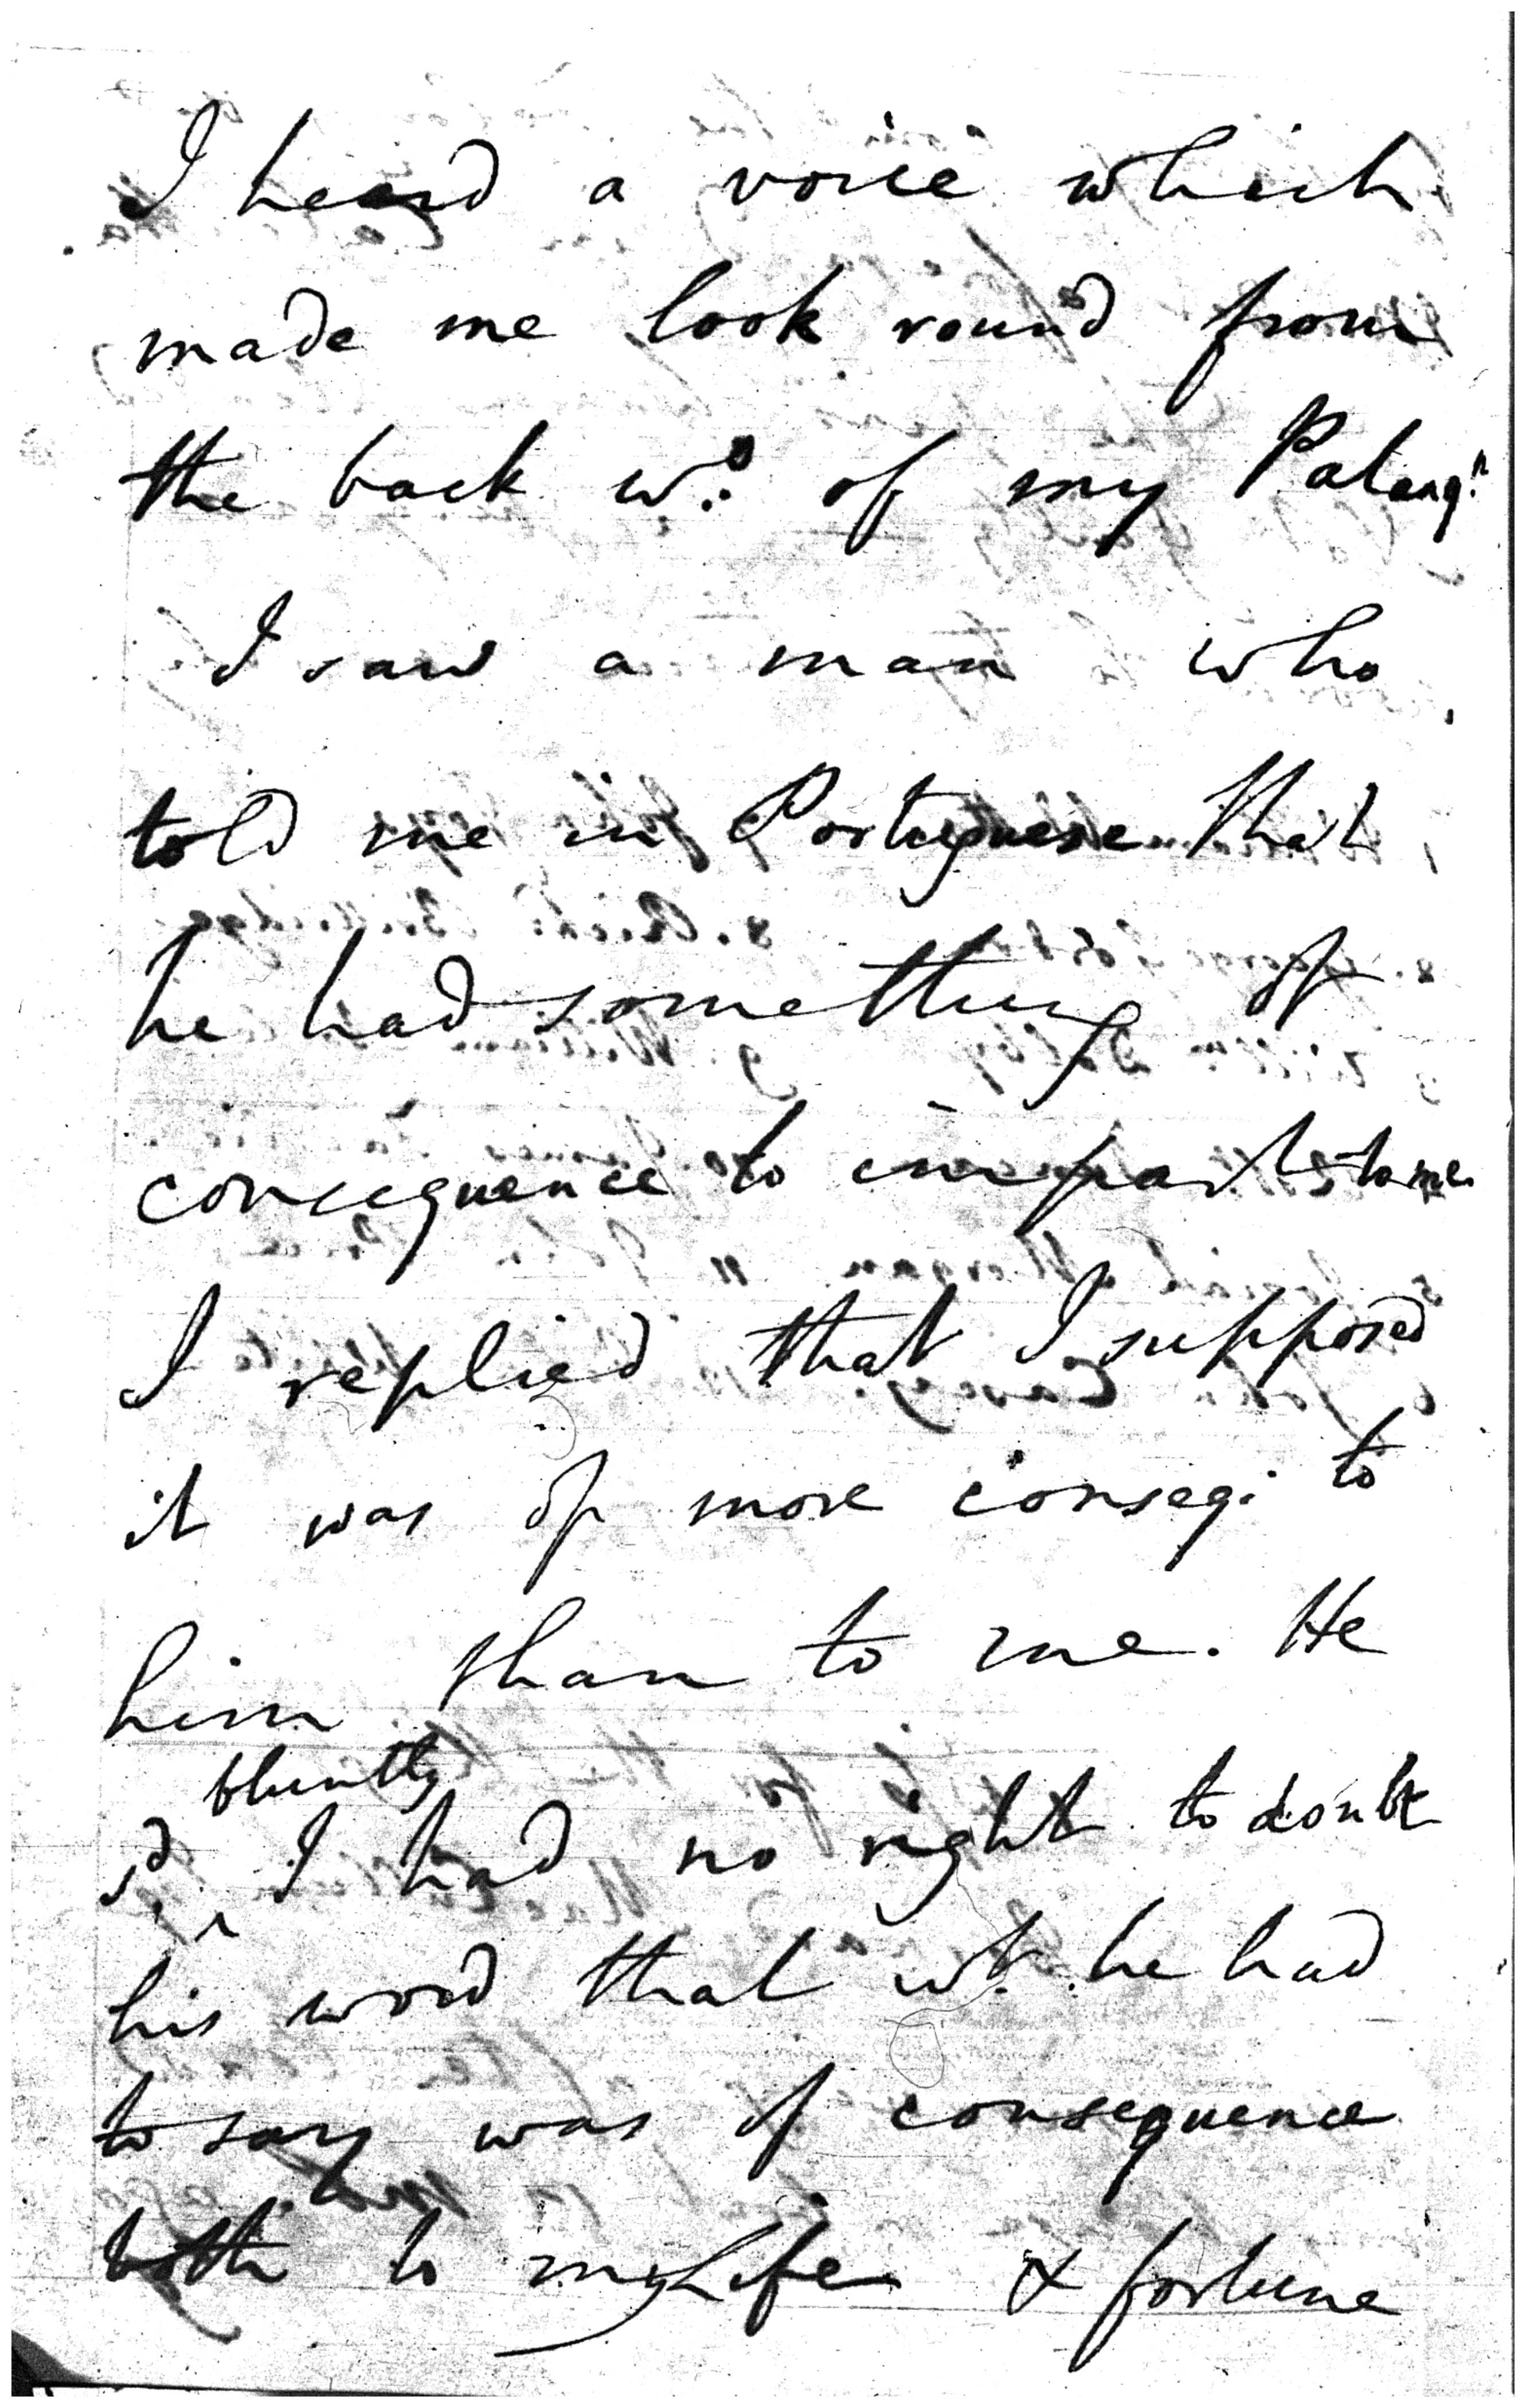 I heard a voice which
made me look round from
the back w.o of my Palanq.n
I saw a man who
told me in Portuguese that
he had something of
consequence to impart to me.
I replied that I supposed
it was of more conseq: to
him than to me. He
bluntly
sd. ^ I had no right to doubt
his word that wt. he had
to say was of consequence
both to my life & fortune